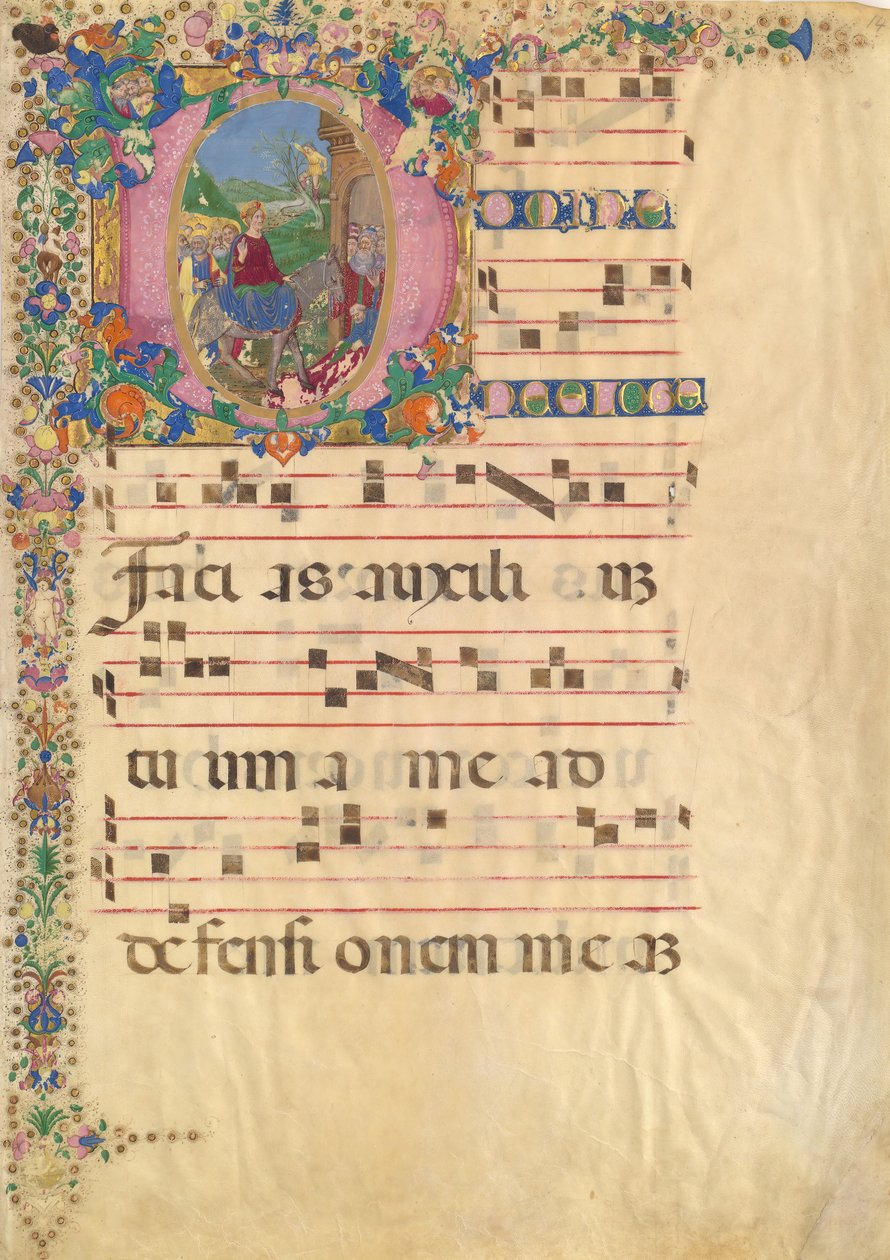 14
DOMINE
NE LOGE
Faci as auxili uʒ
tu um a me ad
defensi onem me aʒ